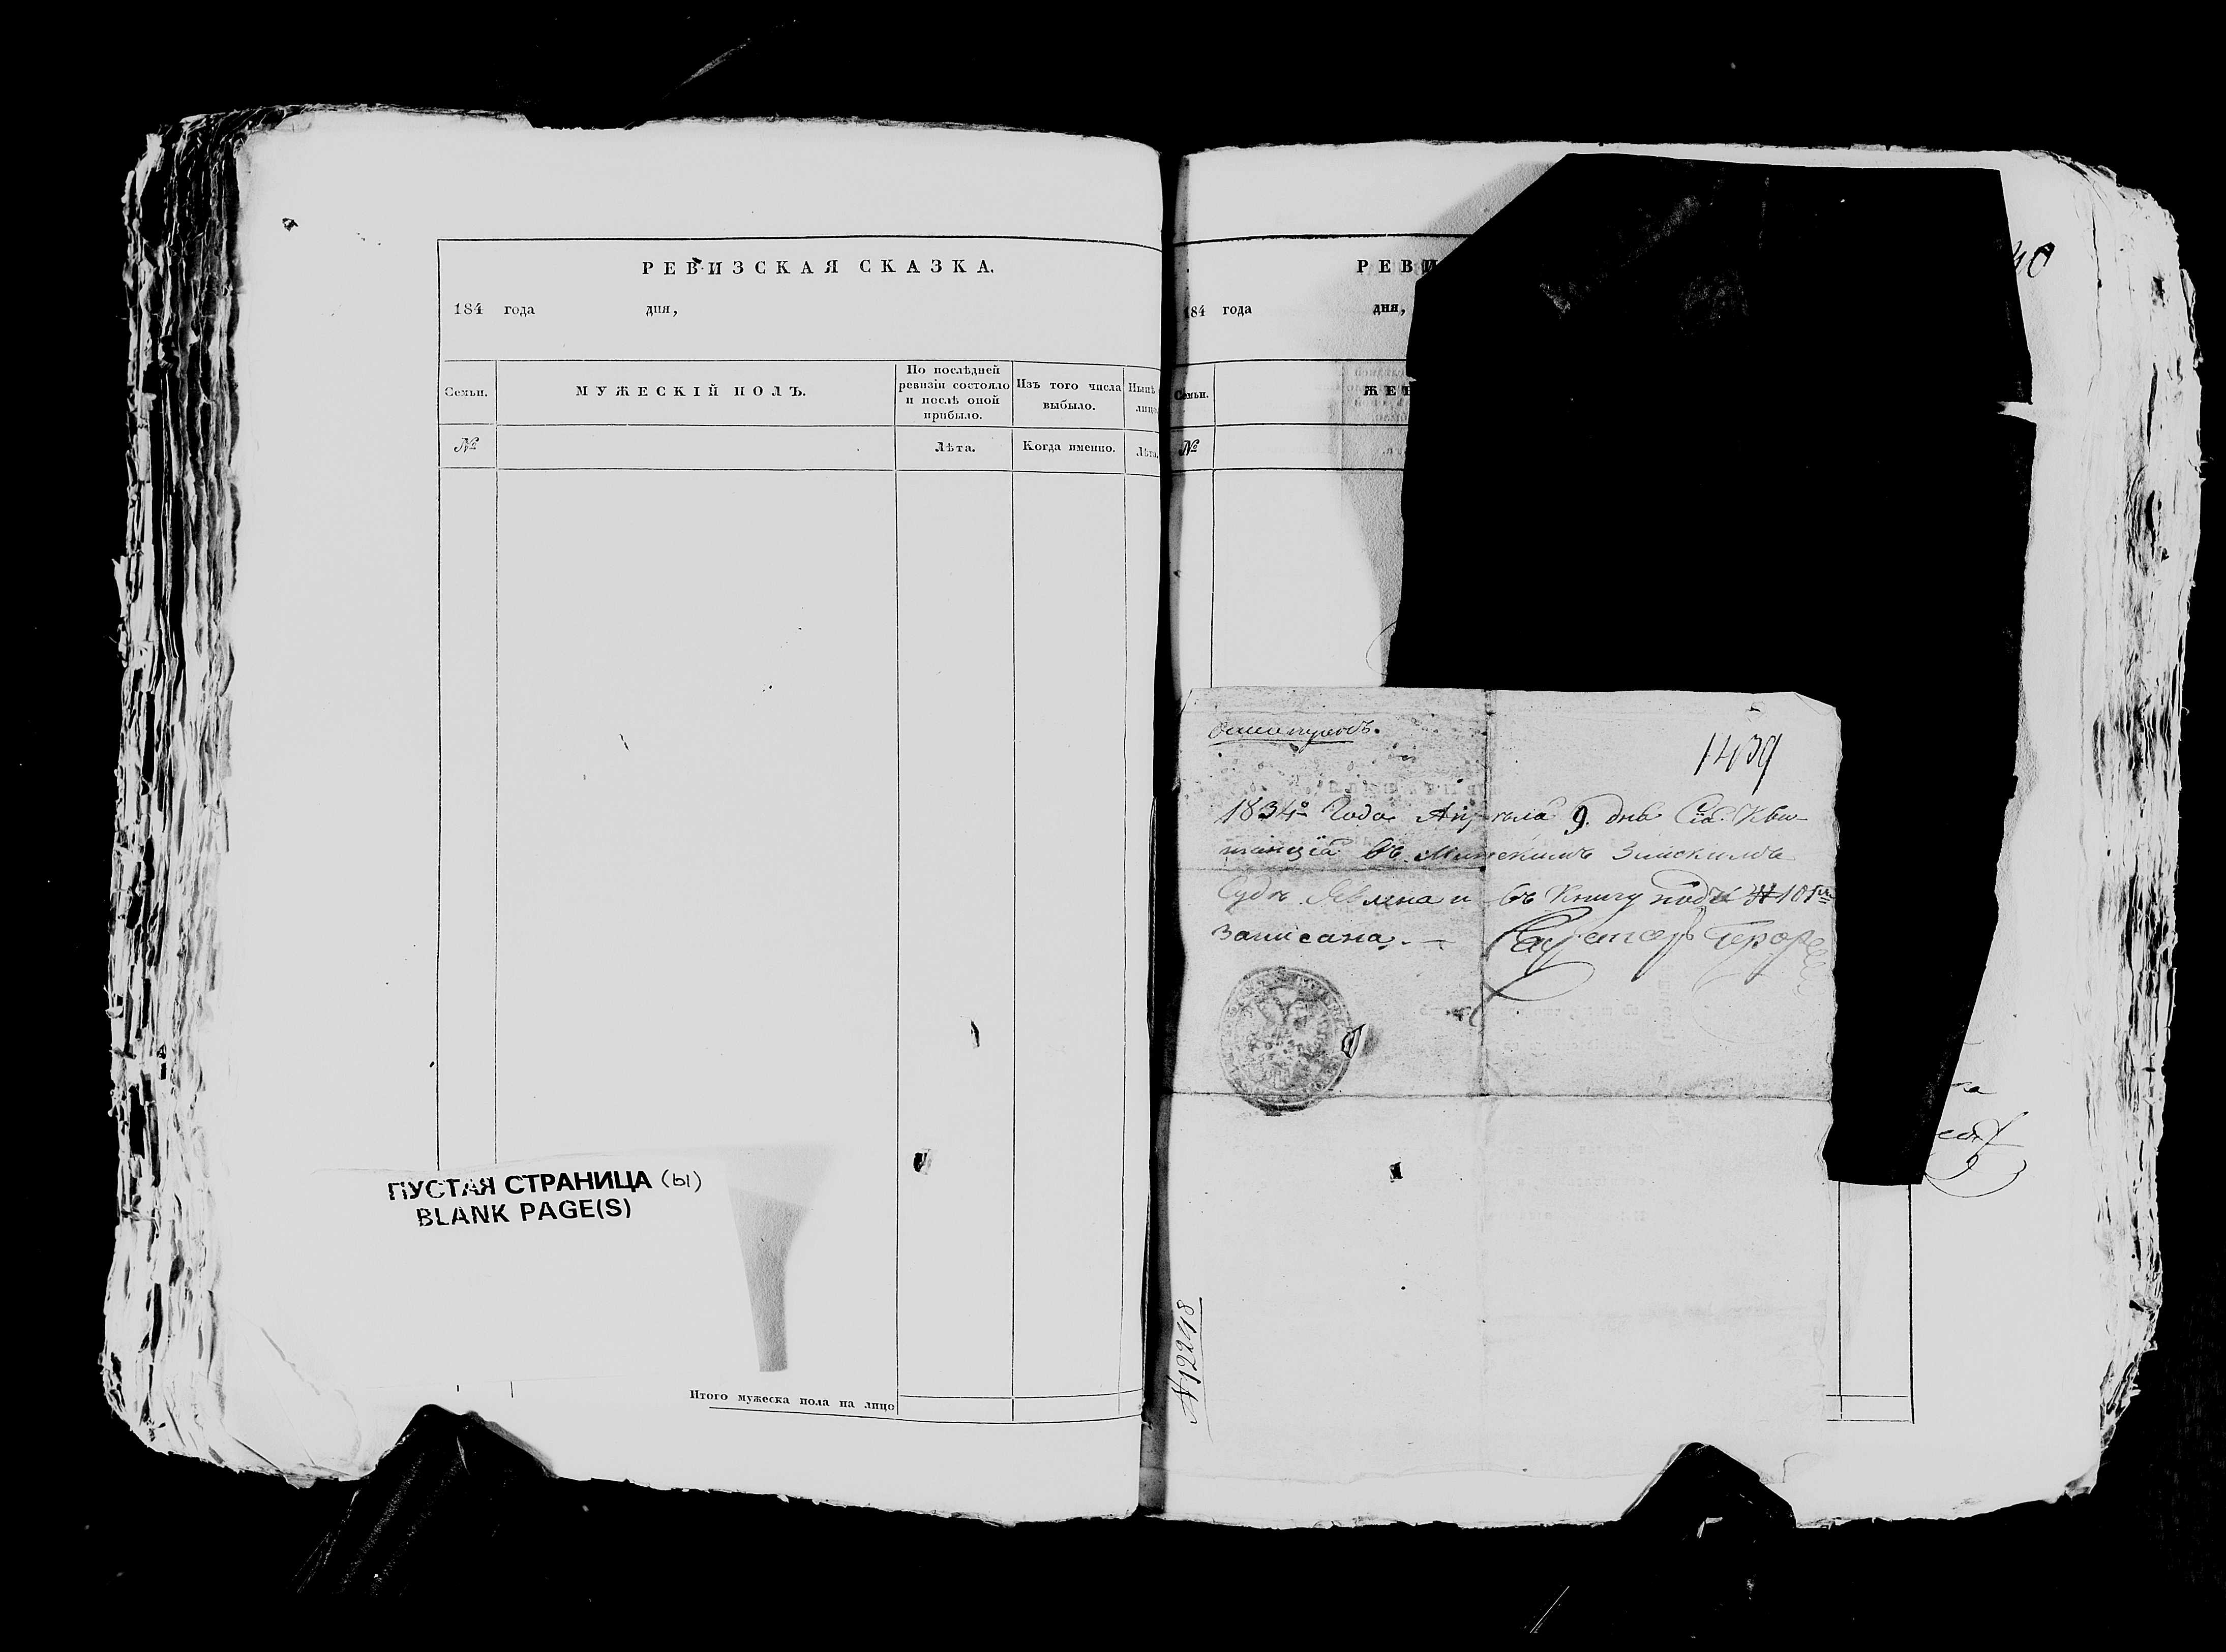 РЕВИЗСКАЯ СКАЗКА.
184 года дня,
Семьи.
МУЖЕСКІЙ ПОЛЪ.
По послѣдней
ревизіи состояло
и послѣ оной
прибыло.
Изъ того числа
выбыло.
Нынѣ
лицо
№
Лѣта.
Когда именно.
Лѣта.
ПУСТАЯ СТРАНИЦА (ы)
BLANK PAGE(S)
Итого мужеска пола на лицо
РЕВИ
184 года дня,
Семьи.
ЖЕН
№
40
1439
1834го Года Апреля 9. дня Сіа Кви-
танціа въ Минскимъ Земскимъ
Суде Явлена и въ Книгу подъ № 101
Записана. —
№ 12248